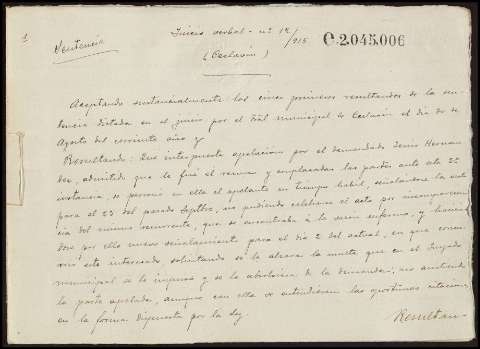 1
Juicio verbal - nº 12/915
C.2.045.006
Sentencia
(Ceclavin)
Aceptando sustancialmente los cinco primeros resultandos de la sen-
tencia dictada en el juicio por el Tral municipal de Ceclavin el dia de
Agosto del corriente año y
Resultando: Que interpuesta apelacion por el demandado Hernan
dez, admitido que le fué el recurso y emplazadas las partes ante esta 2ª
instancia, se personó en ella el apelante en tiempo habil, señalandose la vista
para el 23 del pasado Septbre, no pudiendo celebrarse el acto por incomparecen
cia del mismo recurrente, que se encontraba á la sazon enfermo, y hacien
dose por ello nuevo señalamiento para el dia 2 del actual, en que concu
rrió este interesado solicitando se le alzara la multa que en el Juzgado
municipal se le impuso y se le absolviera de la demanda; no asistiendo
la parte apelada, aunque con ella se entendieron las oportunas citaciones
en la forma dispuesta por la ley.
Resultan-